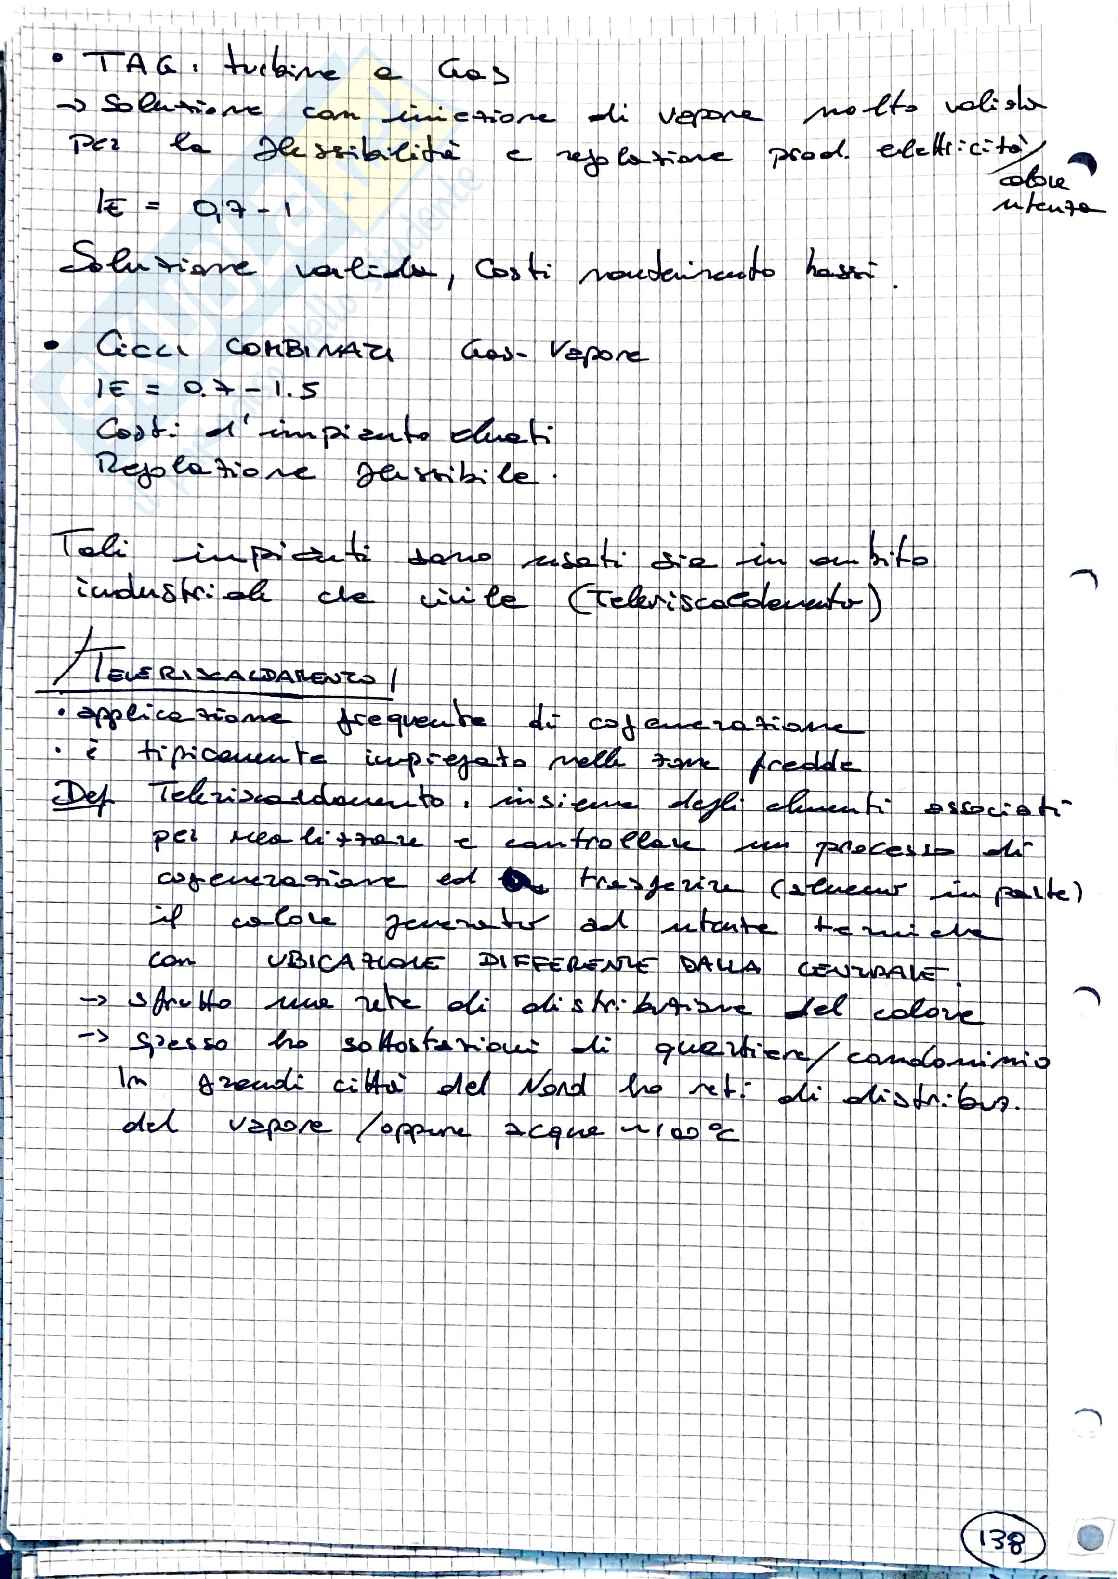 • TAG: turbine a Gas
→ Soluzione con iniezione di vapore molto valida
per la flessibilità e regolazione prod. elettricità/
calore
utenza
IE = 0,7 - 1
Soluzione valida, costi mantenimento bassi.
• CICLI COMBINATI Gas-Vapore
IE = 0.7 - 1.5
Costi d'impianto elevati
Regolazione flessibile.
Tali impianti sono usati sia in ambito
industriale che civile (Teleriscaldamento)
TELERISCALDAMENTO
• applicazione frequente di cogenerazione
• è tipicamente impiegato nelle zone fredde
Def Teleriscaldamento: insieme degli elementi associati
per realizzare e controllare un processo di
cogenerazione ed trasferire (almeno in parte)
il calore generato ad utente termiche
con UBICAZIONE DIFFERENTE DALLA CENTRALE.
→ sfrutto una rete di distribuzione del calore
→ spesso ho sottostazioni di quartiere/condominio
In grandi città del Nord ho reti di distribuz.
del vapore /oppure acqua ~100°C
138